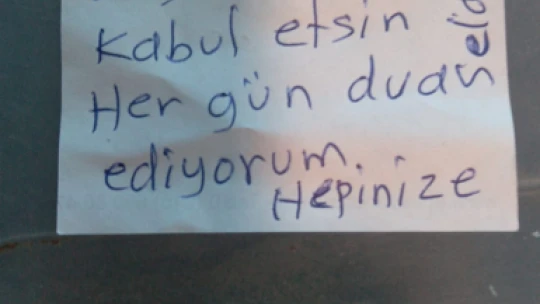 Kabul etsin
Her gün duan
ediyorum.
Hepinize